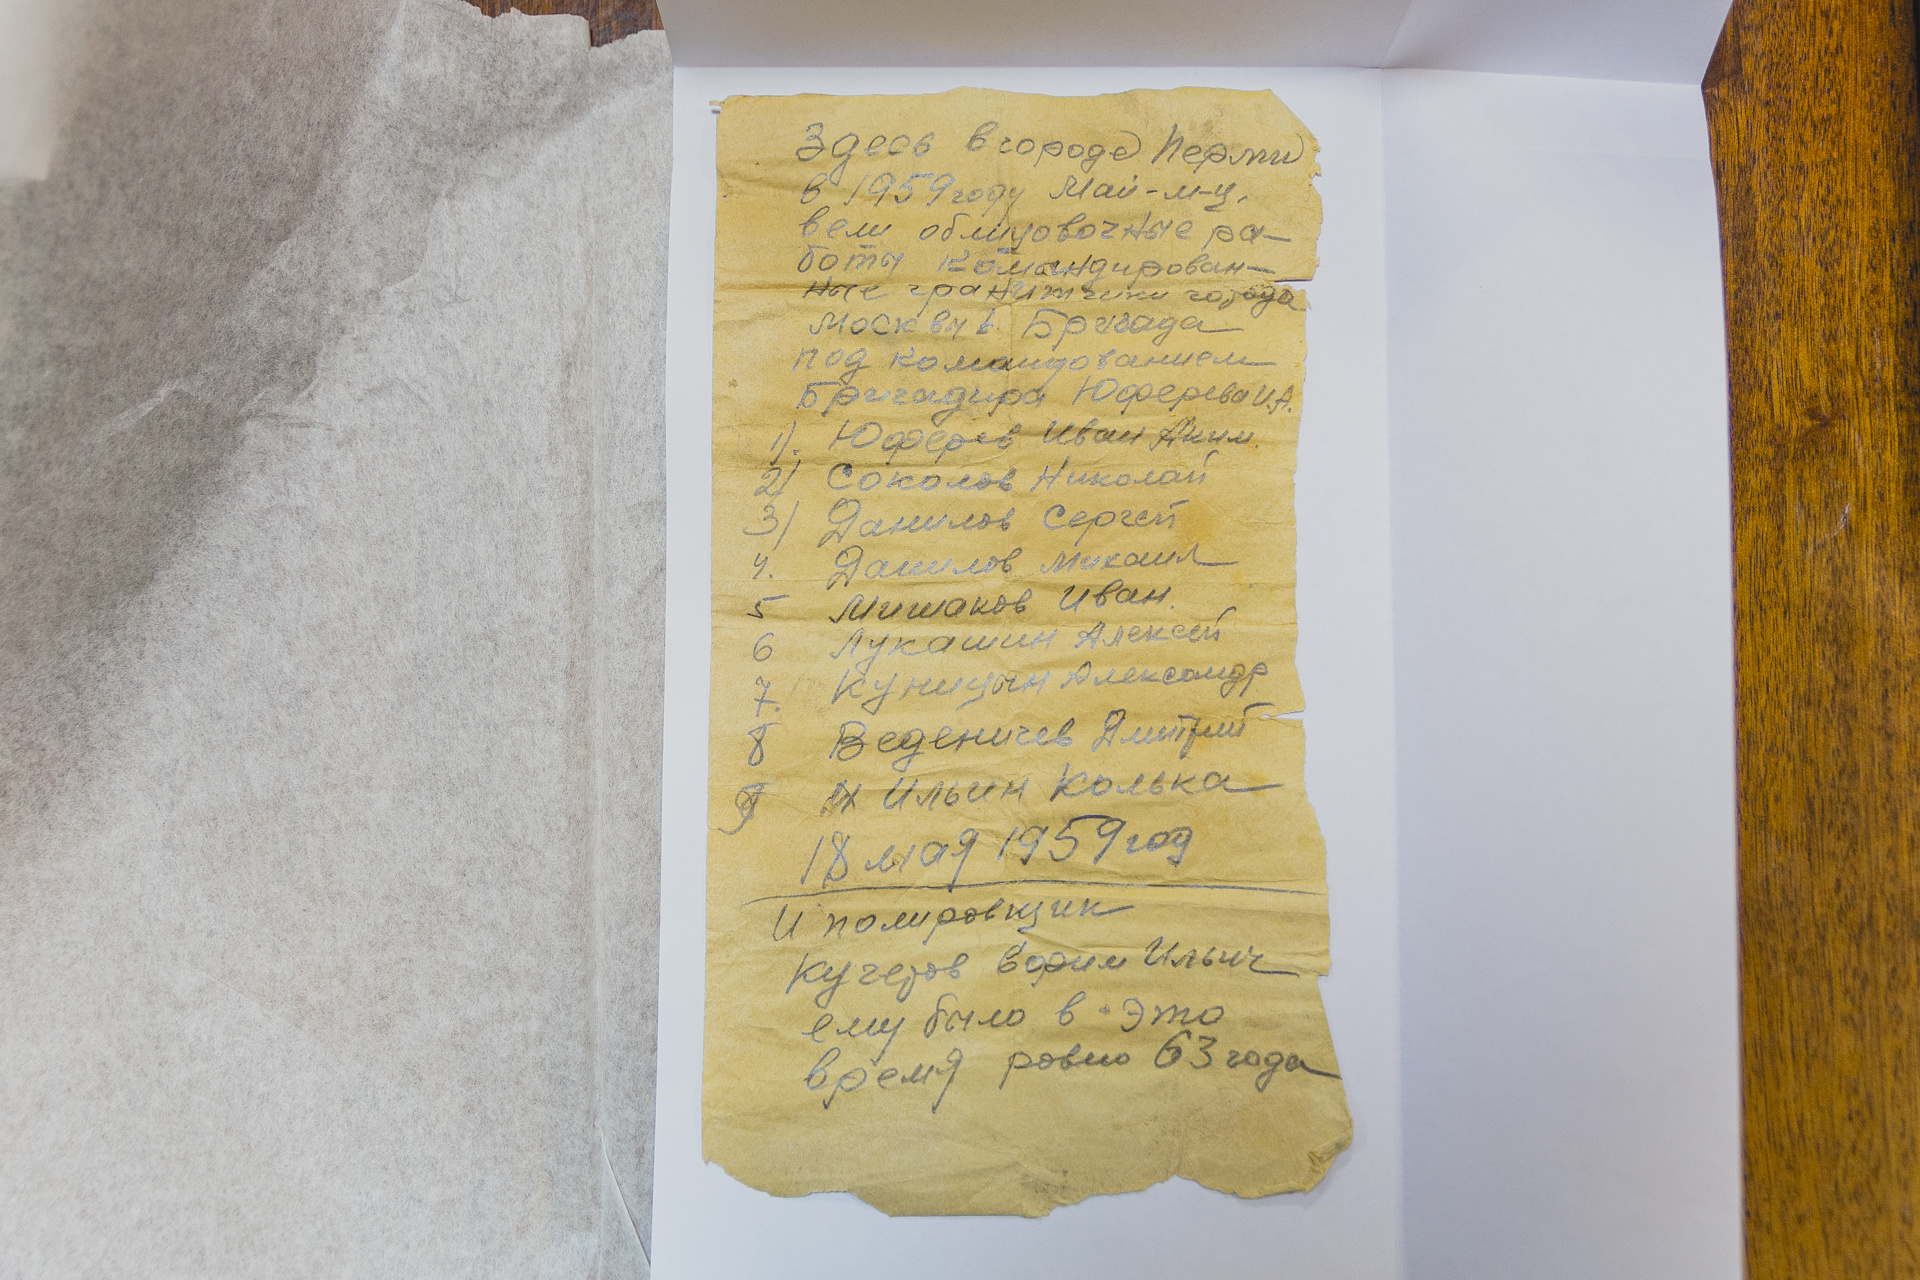 Здесь в городе Перми
в 1959 году Май-м-ц.
вели облицовочные ра-
боты командирован-
ные гранитчики города
Москвы Бригада
под командованием
Бригадира Юферева И.А.
1). Юферев Иван Аким.
2) Соколов Николай
3) Данилов Сергей
4. Данилов Михаил
5 Мишаков Иван.
6 Лукашин Алексей
7. Куницын Александр
8 Веденичев Дмитрий
9 Ильин Колька
18 мая 1959 год
И полировщик
Кучеров Ильич
ему было в это
время ровно 63 года